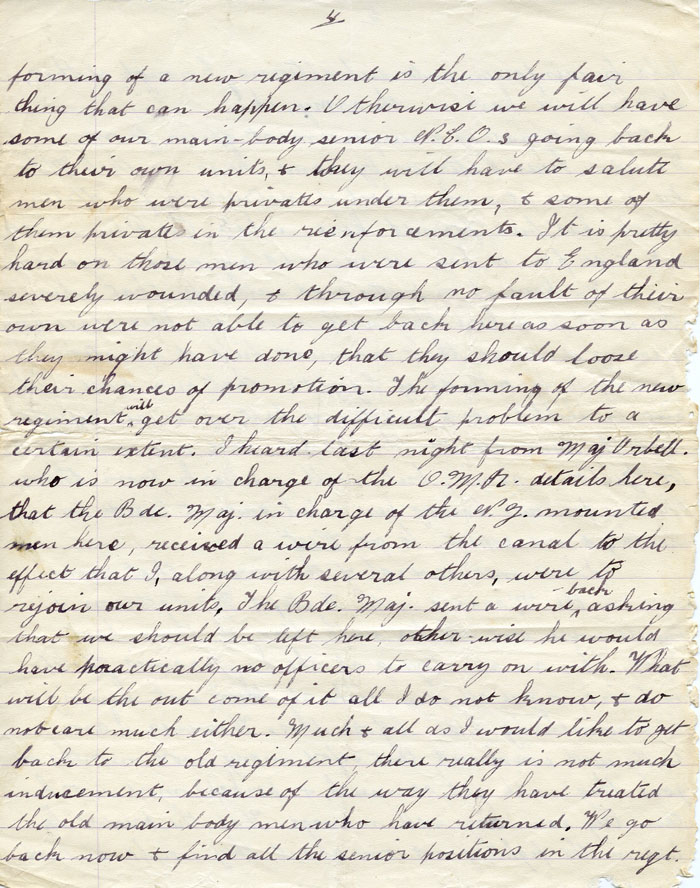 4
forming of a new regiment is the only fair
thing that can happen. Otherwise we will have
some of our main-body senior N.C.O.s going back
to their own units, & they will have to salute
men who were privates under them, & some of
them privates in the reinforcements. It is pretty
hard on those men who were sent to England
severely wounded, & through no fault of their
own were not able to get back here as soon as
they might have done, that they should loose
their chances of promotion. The forming of the new
regiment will get over the difficult problem to a
certain extent. I heard last night from Maj Orbell.
who is now in charge of the O.M.R. details here,
that the Bde. Maj. in charge of the N.Z. mounted
men here, received a wire from the canal to the
effect that I, along with several others, were to
rejoin our units. The Bde. Maj. sent a wire back asking
that we should be left here, other-wise he would
have practically no officers to carry on with. What
will be the out come of it all I do not know, & do
not care much either. Much & all as I would like to get
back to the old regiment, there really is not much
inducement, because of the way they have treated
the old main body men who have returned. We go
back now & find all the senior positions in the regt.